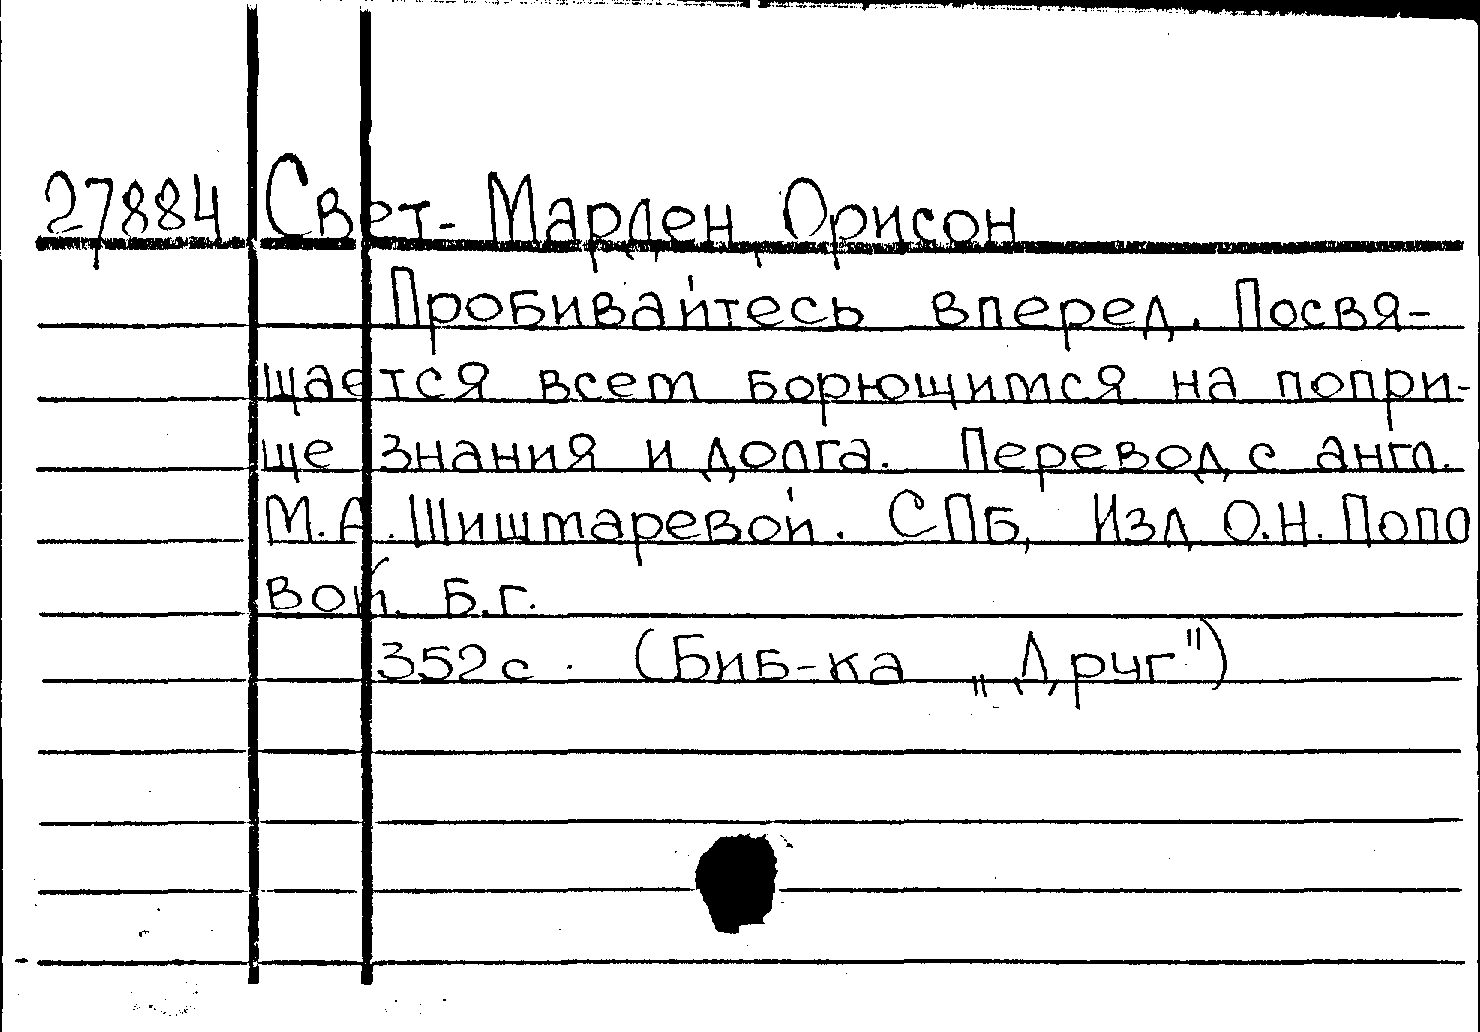 27884 Свет-Марден, Орисон
Пробивайтесь вперед. Посвя-
щается всем борющимся на попри-
ще знания и долга. Перевод с англ.
М.А.Шишмаревой. СПБ, Изд О.Н.Попо
вой. Б.г.
352с. (Биб-ка „Друг")